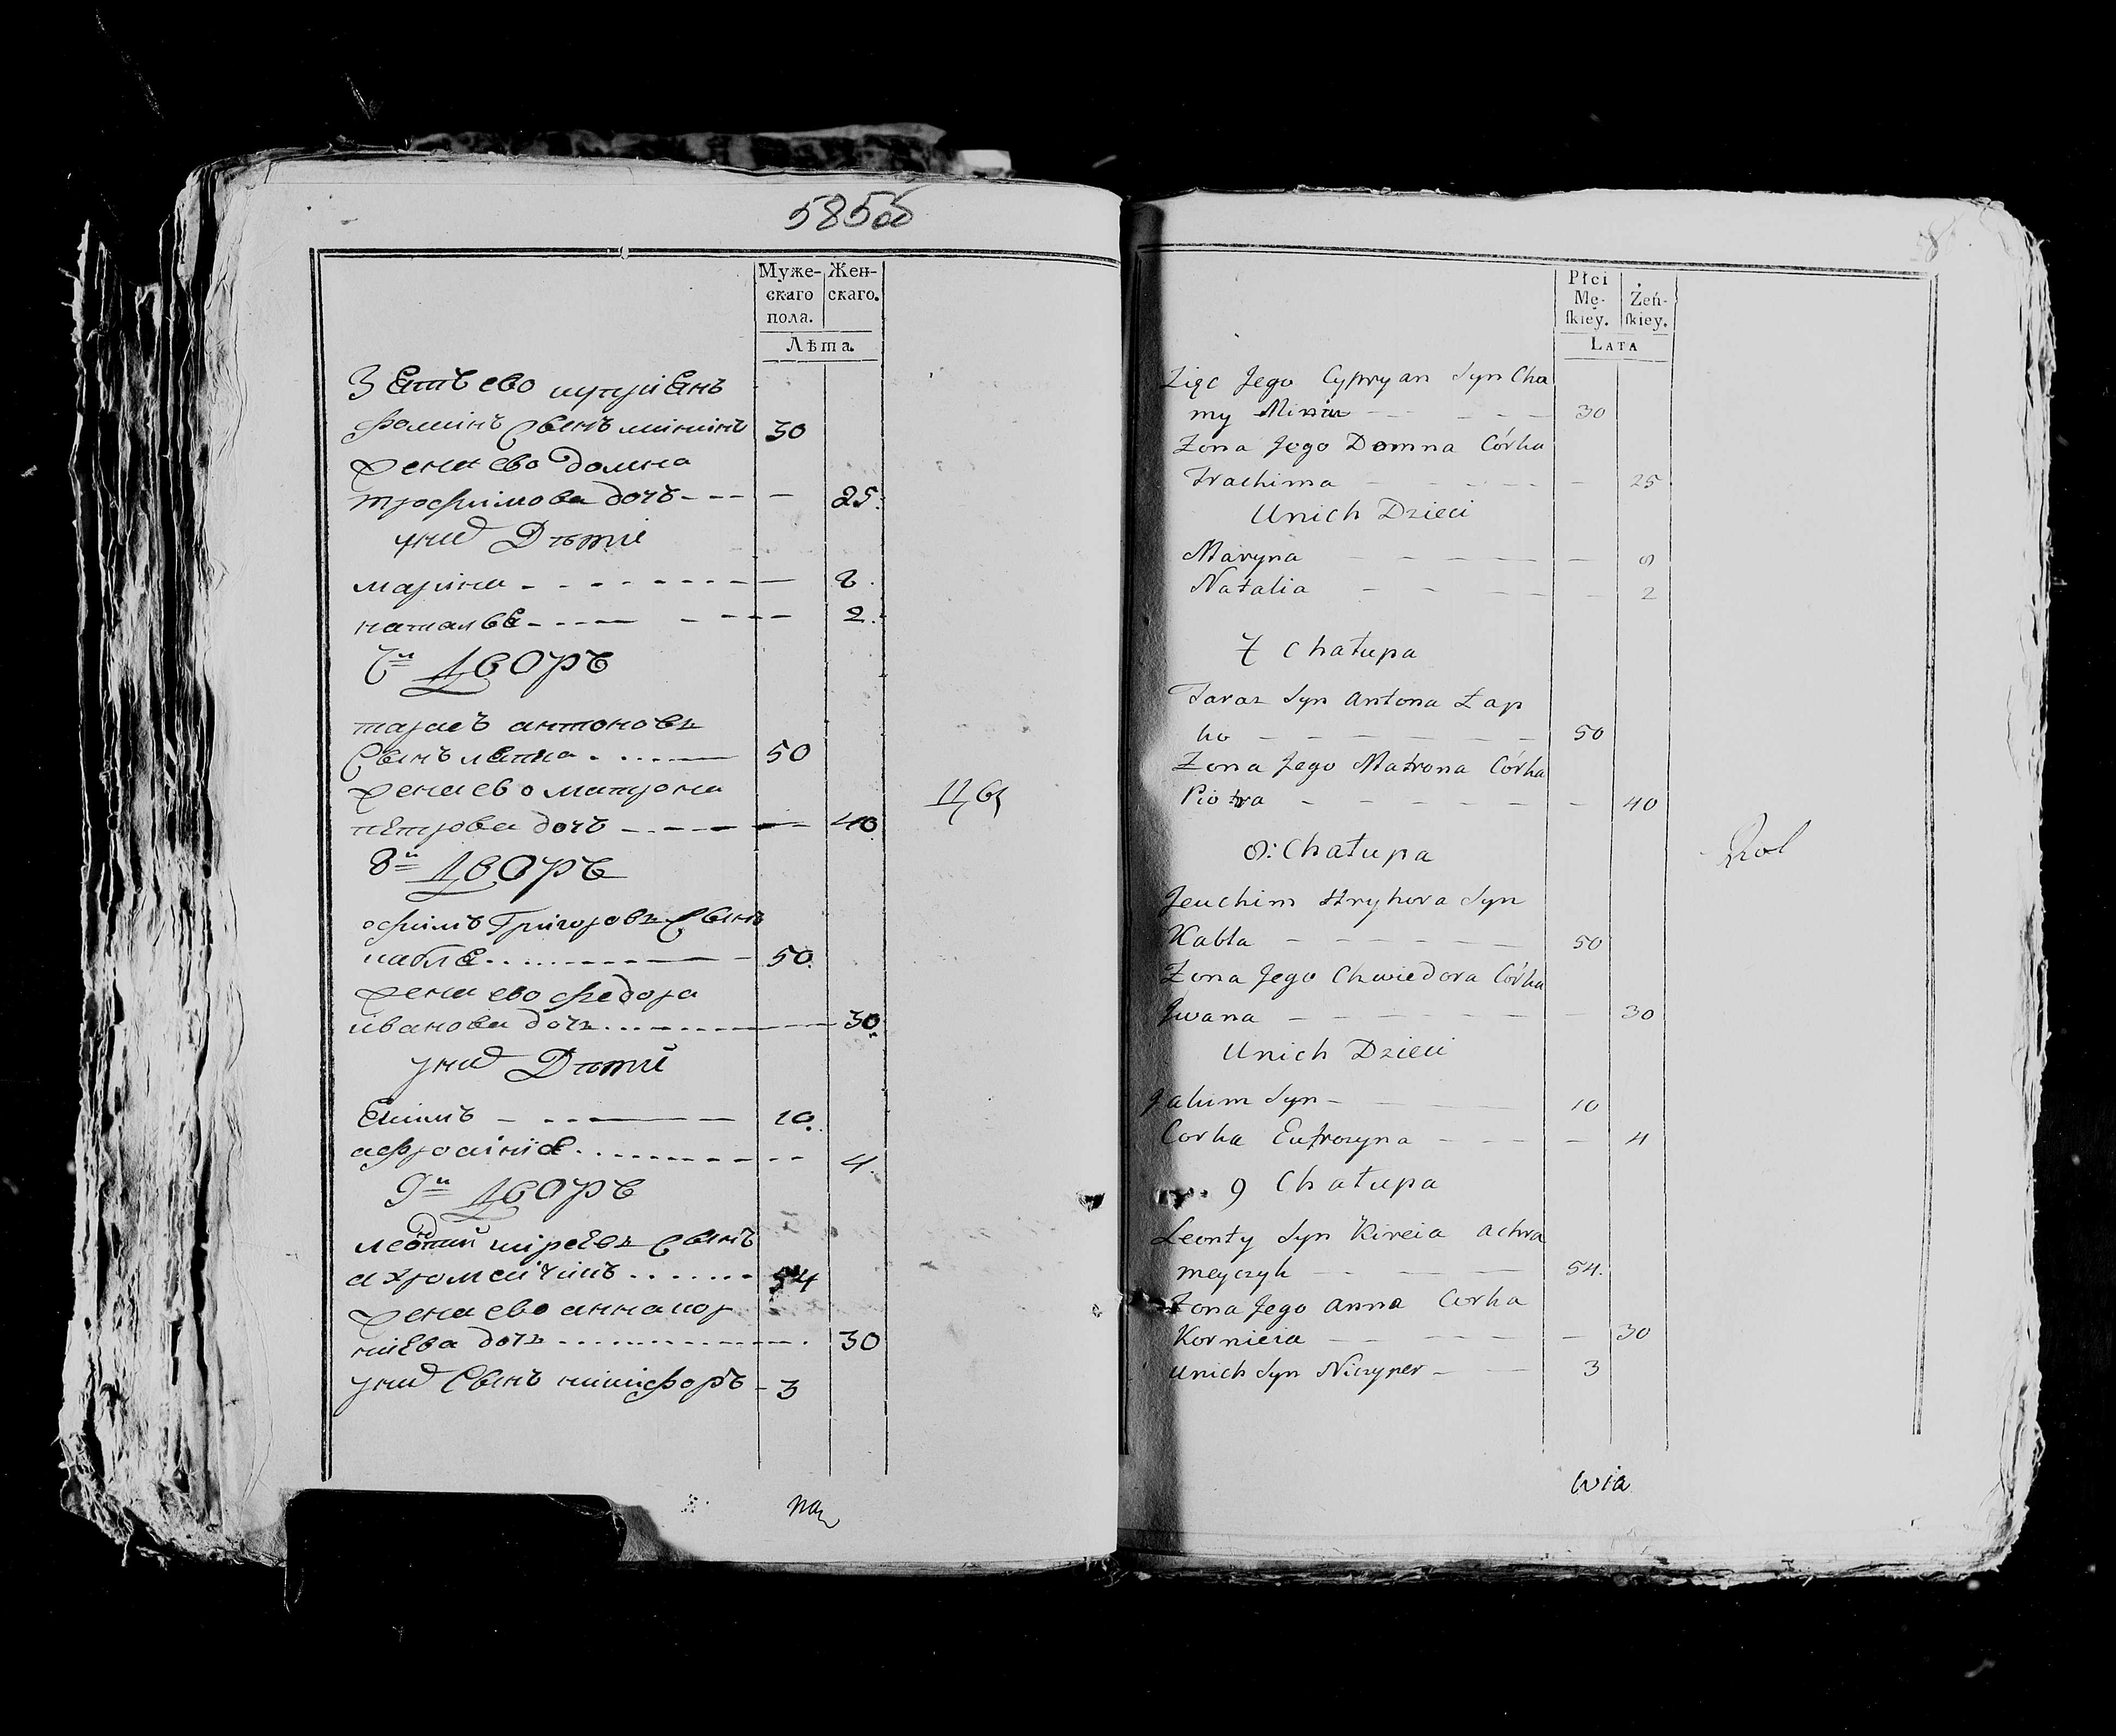 585об
Муже-
скаго
пола.
Жен-
скаго.
Лѣта.
Зятъ ево куприянъ
фоминъ сынъ мининъ 30
жена ево домна
трофимова дочъ - - - — 25.
у них Дѣти
марина - - - - - - - - — 8.
наталья - - - - — - - - - 2.
7й Дворъ
тарасъ антоновъ
сынъ лапка . . . . . — 50
жена ево матрона
петрова дочъ — - - - — 40
8й Дворъ
ефимъ Григоровъ сынъ
кабля . . . . . . . . — 50.
жена ево федора
иванова дочъ . . . - - - - — 30.
у них Дѣти
Екимъ — - - — 10.
афросиния . . . - - - - - 4.
9й Дворъ
леонтий киреевъ сынъ
ахромейчикъ . . . . . . 54
жена ево анна кор
ниева дочъ - - - - - - - - - . 30
у них сынъ никифоръ - 3
на
Płci
Mę-
ſkiey.
Żeń-
ſkiey.
Lata
Zięc Jego Cypryan Syn Cho
my Minin — — — — 30
Zona Jego Domna Córka
Trachima — — — — — 25
Unich Dzieci
Maryna — — — — — 8
Natalia — — — — — 2
7 Chałupa
Taras Syn Antona Łap
ko — — — — — — 50
Zona Jego Matrona Córka
Piotra — — — — — — 40
8: Chałupa
Jeuchim Hryhora Syn
Kabla — — — — — 50
Zona Jego Chwiedora Córka
Jwana — — — — — — 30
Unich Dzieci
Jakim Syn — — 10
Corka Eufrozyna — — — — 4
9 Chałupa
Leonty Syn Kireia achra
meyczyk — — — — 54.
Zona Jego anna Corka
Kornieia — — — — — 30
Unich Syn Niczyper — — 3
wia